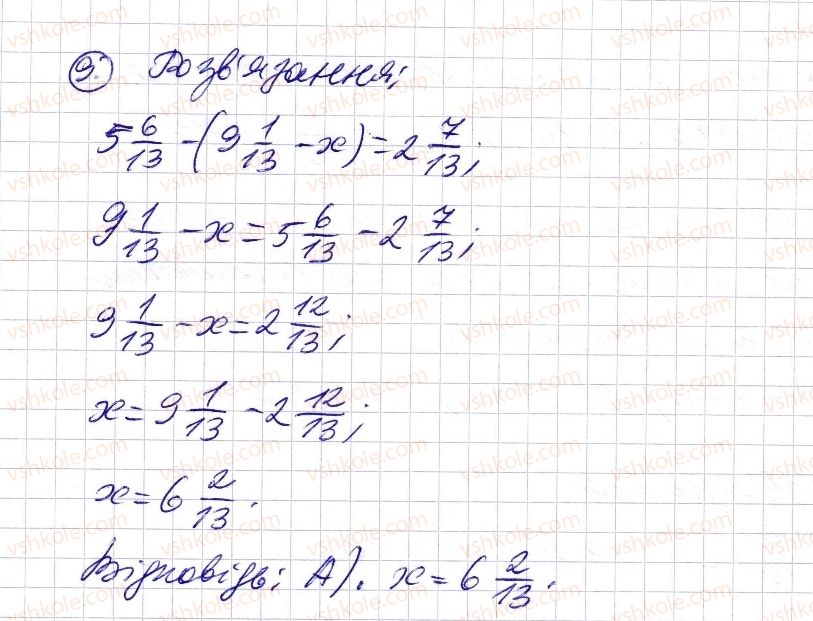 9. Розв'язання;
5 6/13 - (9 1/13 - x) = 2 7/13;
9 1/13 - x = 5 6/13 - 2 7/13;
9 1/13 - x = 2 12/13;
x = 9 1/13 - 2 12/13;
x = 6 2/13.
Відповідь: А). x = 6 2/13.
vshkole.com